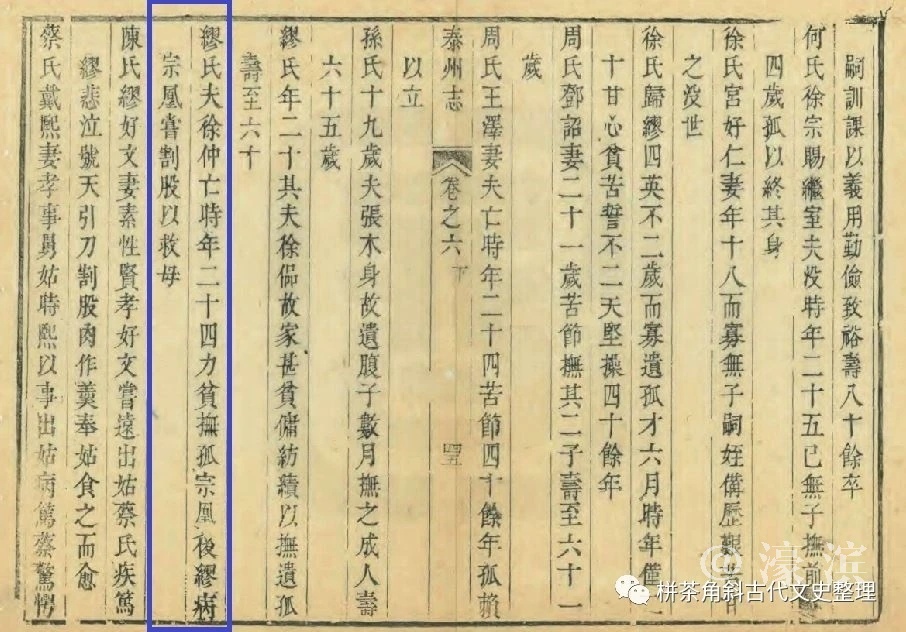 嗣訓課以義用勤儉致裕壽八十餘卒
何氏徐宗賜繼室夫歿時年二十五已無子撫前
四歲孤以終其身
徐氏宮好仁妻年十八而寡無子嗣姪備歷艱苦
之沒世
徐氏歸繆四英不二歲而寡遺孤才六月時年僅二
十甘心貧苦誓不二天堅操四十餘年
周氏鄧詔妻二十一歲苦節撫其二子壽至六十一
歲
周氏王澤妻夫亡時年二十四苦節四十餘年孤賴
泰州志 卷之六
以立
孫氏十九歲夫張木身故遺腹子數月撫之成人壽
六十五歲
繆氏年二十其夫徐侃故家甚貧傭紡績以撫遺孤
壽至六十
繆氏夫徐仲亡時年二十四力貧撫孤宗凰後繆病
宗凰嘗割股以救母
陳氏繆好文妻素性賢孝好文嘗遠出姑蔡氏疾篤
繆悲泣號天引刀割股肉作羹奉姑食之而愈
蔡氏戴熙妻孝事舅姑時熙以事出姑病篤蔡驚愕
@濠滨
栟茶角斜古代文史整理